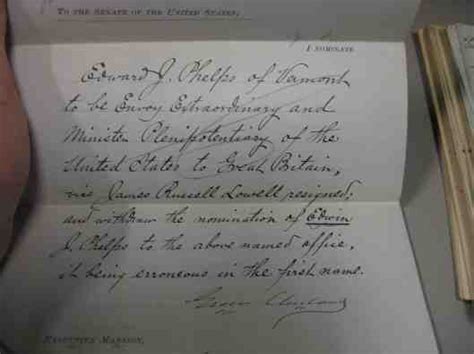 To the Senate of the United States:
I nominate
Edward J. Phelps of Vermont
to be Envoy Extraordinary and
Minister Plenipotentiary of the
United States to Great Britain,
vice James Russell Lowell resigned;
and withdraw the nomination of Edwin
J. Phelps to the above named office,
it being erroneous in the first name.
Grover Cleveland
Executive Mansion,